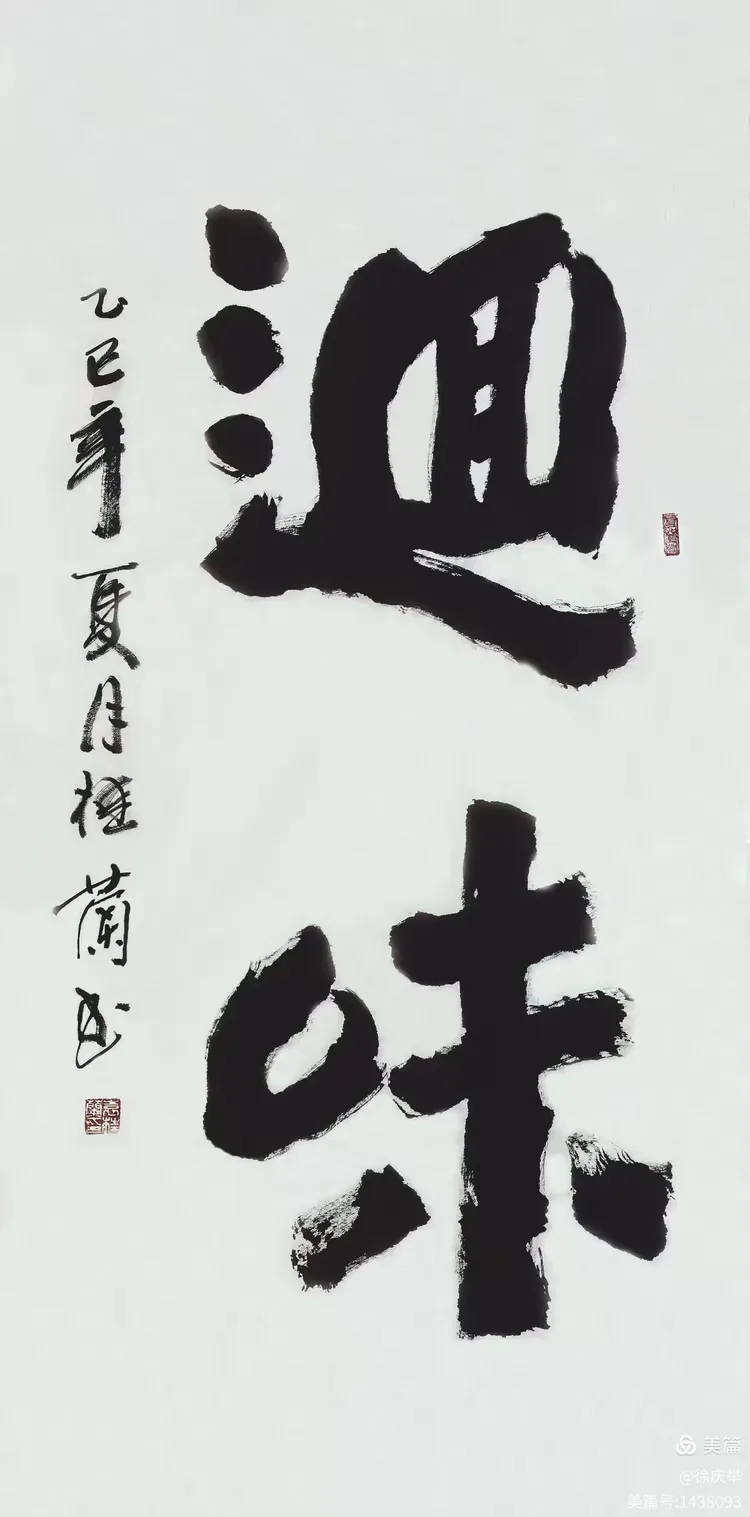 迴味
乙巳年夏月桂蘭书
美篇
@徐庆举
美篇号:1438093